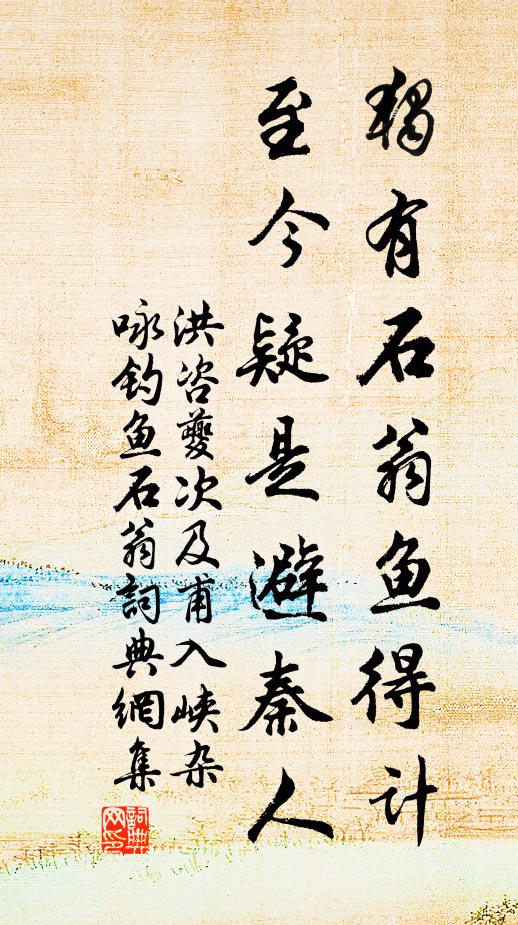 独有石翁鱼得计
至今疑是避秦人
洪咨夔次及甫入峡杂
咏钓鱼石翁詞典網集
詞典网印